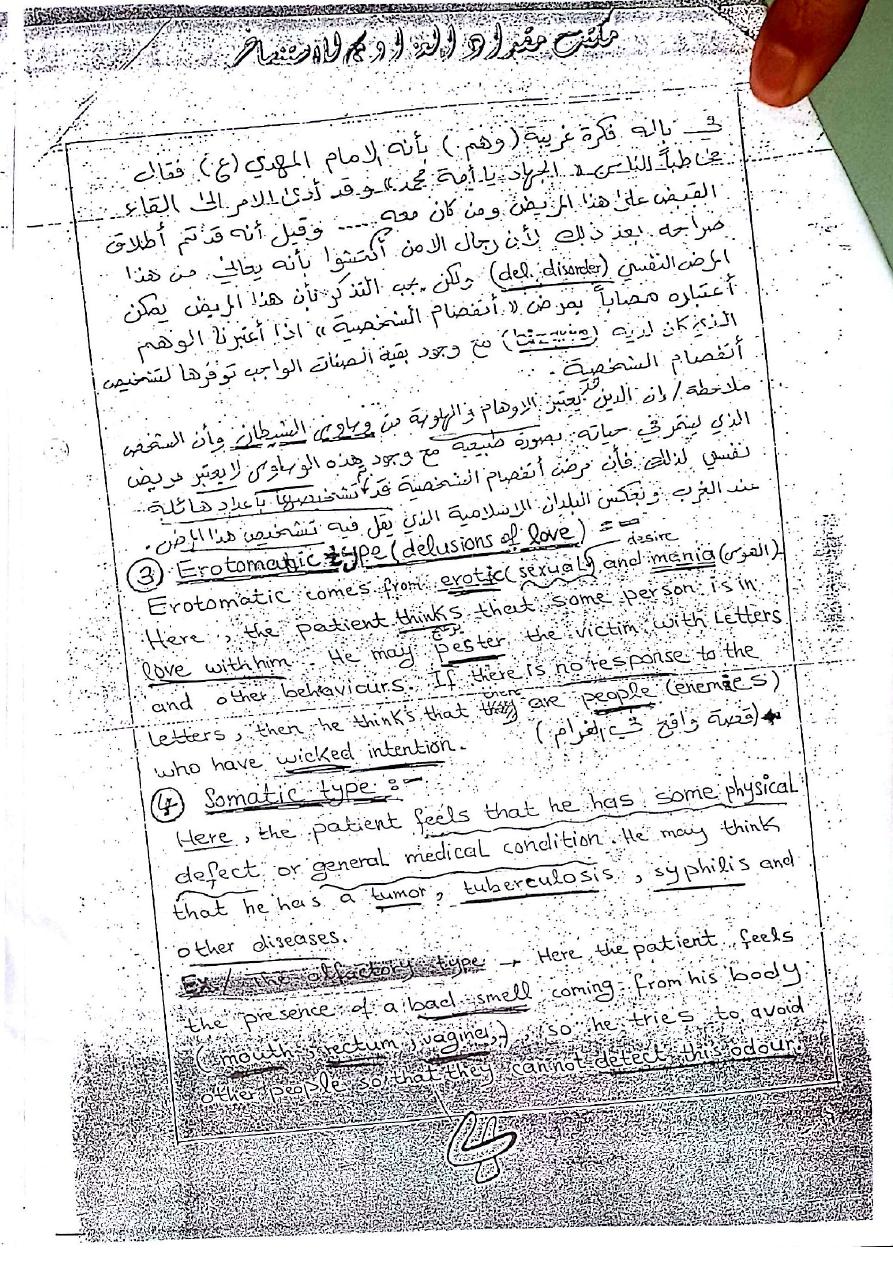 مكتب مقداد الذاوي للاستنساخ
في باله فكرة غريبة (وهم) بأنه الامام المهدي (ع) فقال
مخاطباً الناس "الجهاد يا أمة محمد" وقد أدى الامر الى القاء
القبض على هذا المريض ومن كان معه .... وقيل أنه قد تم أطلاق
صراحه بعد ذلك لأن رجال الامن أكتشفوا بأنه يعاني من هذا
المرض النفسي (del. disorder) ولكن يجب التذكر بأن هذا المريض يمكن
أعتباره مصاباً بمرض "أنفصام الشخصية" اذا أعتبرنا الوهم
الذي كان لديه مع وجود بقية الصفات الواجب توفرها لتشخيص
أنفصام الشخصية.
ملاحظة / إن الدين قد يعتبر الاوهام والهلوسة من وساوس الشيطان وأن الشخص
الذي يستمر في حياته بصورة طبيعية مع وجود هذه الوساوس لا يعتبر مريض
نفسي لذلك فأن مرض أنفصام الشخصية قد تشخيصها بأعداد هائلة
عند الغرب وبعكس البلدان الاسلامية الذي يقل فيه تشخيص هذا المرض.
③ Erotomanic type (delusions of love) :-
desire
Erotomatic comes from erotic (sexual) and mania (الهوس)
Here, the patient thinks that some person is in
love with him. He may pester the victim with letters
and other behaviours. If there is no response to the
letters, then he thinks that there are people (enemies)
who have wicked intention. (قصة وافح في الغرام)
④ Somatic type :-
Here, the patient feels that he has some physical
defect or general medical condition. He may think
that he has a tumor, tuberculosis, syphilis and
other diseases.
Ex/ The olfactory type → Here the patient feels
the presence of a bad smell coming from his body
(mouth, rectum, vagina,), so he tries to avoid
other people so that they cannot detect this odour.
4